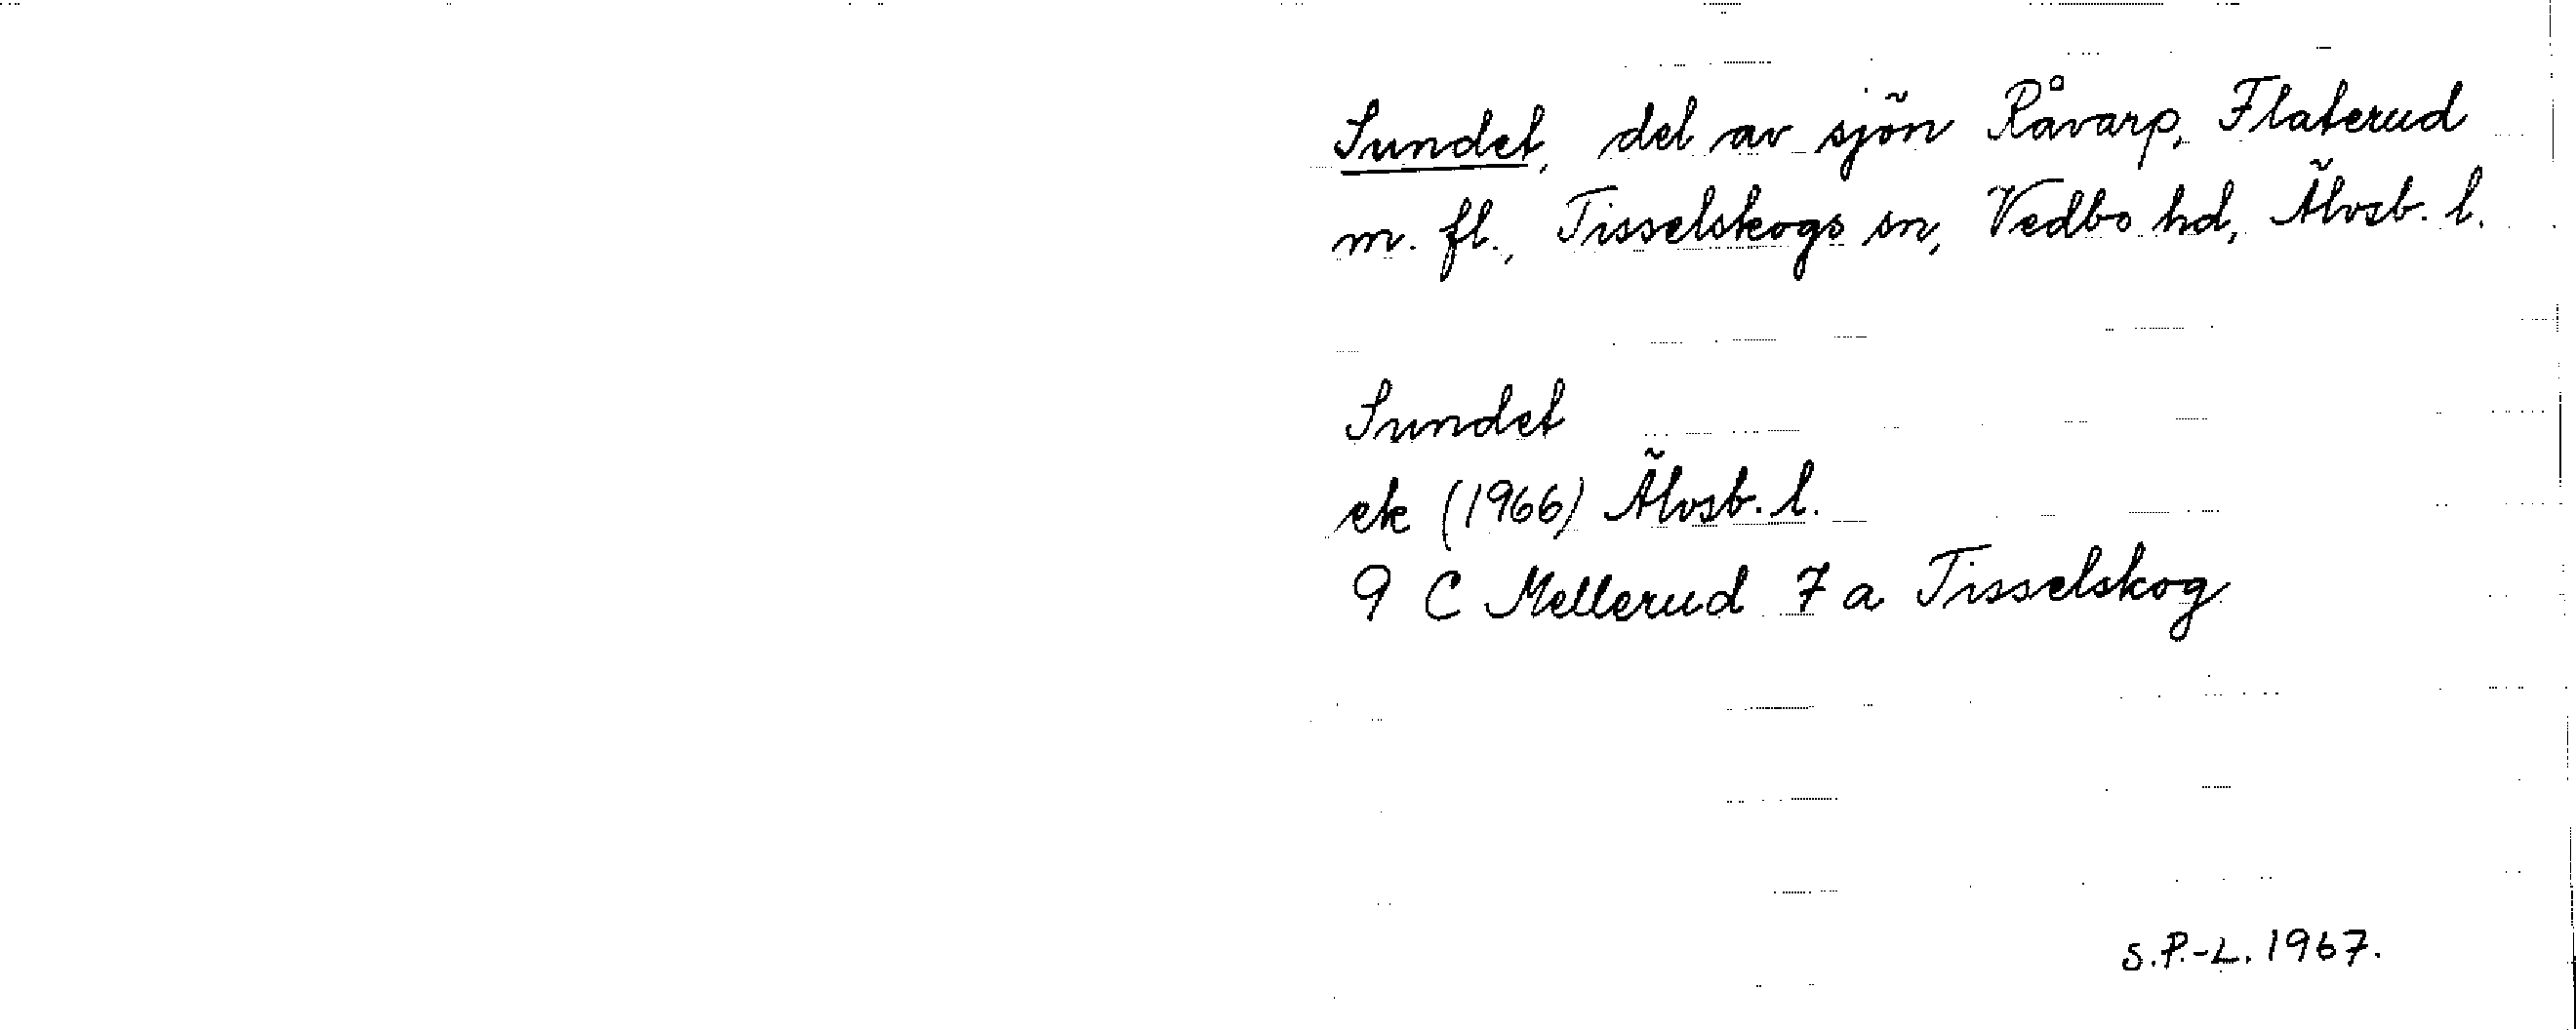 Sundet, del av sjön Råvarp, Flaterud
m. fl., Tisselskogs sn, Vedbo hd, Älvsb. l.
Sundet
ek (1966) Älvsb. l.
9 C Mellerud 7 a Tisselskog
S.P.-L. 1967.